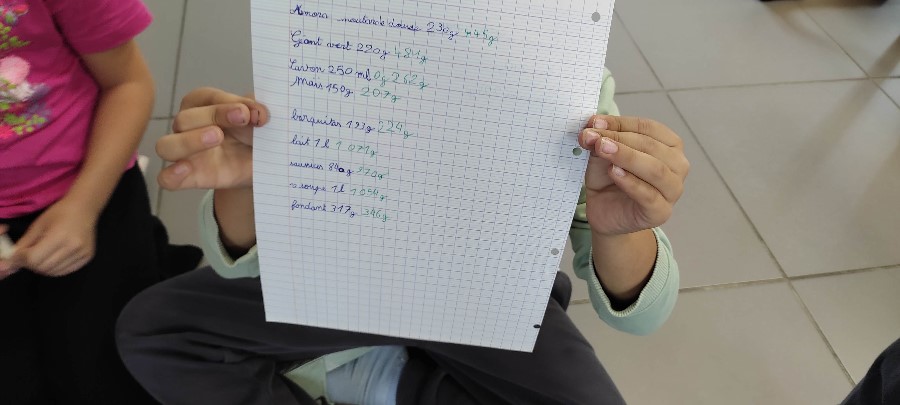 Amora moutarde douce 230g 445g
Géant vert 220g 481g
Savon 250 ml 262g
Maïs 150g 207g
barquettes 193g 224g
lait 1l 1 071g
soupe 1l 1056g
fondant 317g 346g